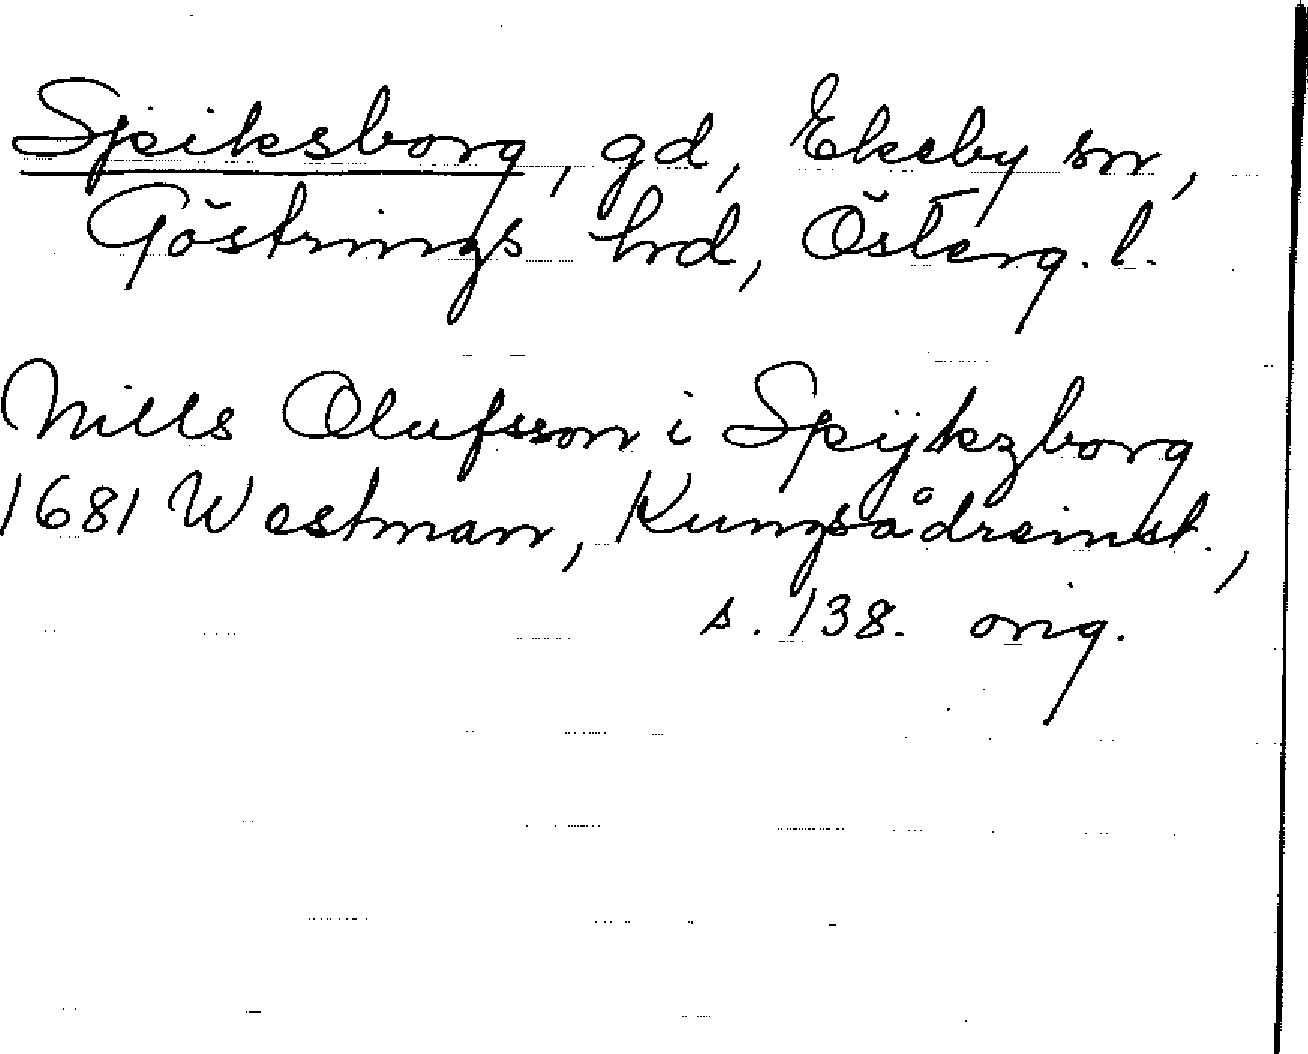 Spiksborg, gd, Ekeby sn,
Göstrings hrd, Österg. l.
Nills Olufsson i Spÿkzborg
1681 Westman, Kungsådreinst.,
s. 138. orig.